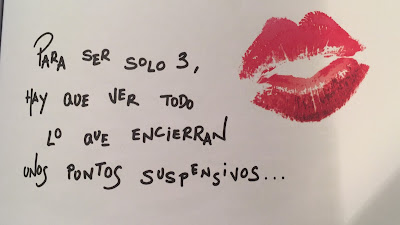 PARA SER SOLO 3,
HAY QUE VER TODO
LO QUE ENCIERRAN
UNOS PONTOS SUSPENSIVOS...